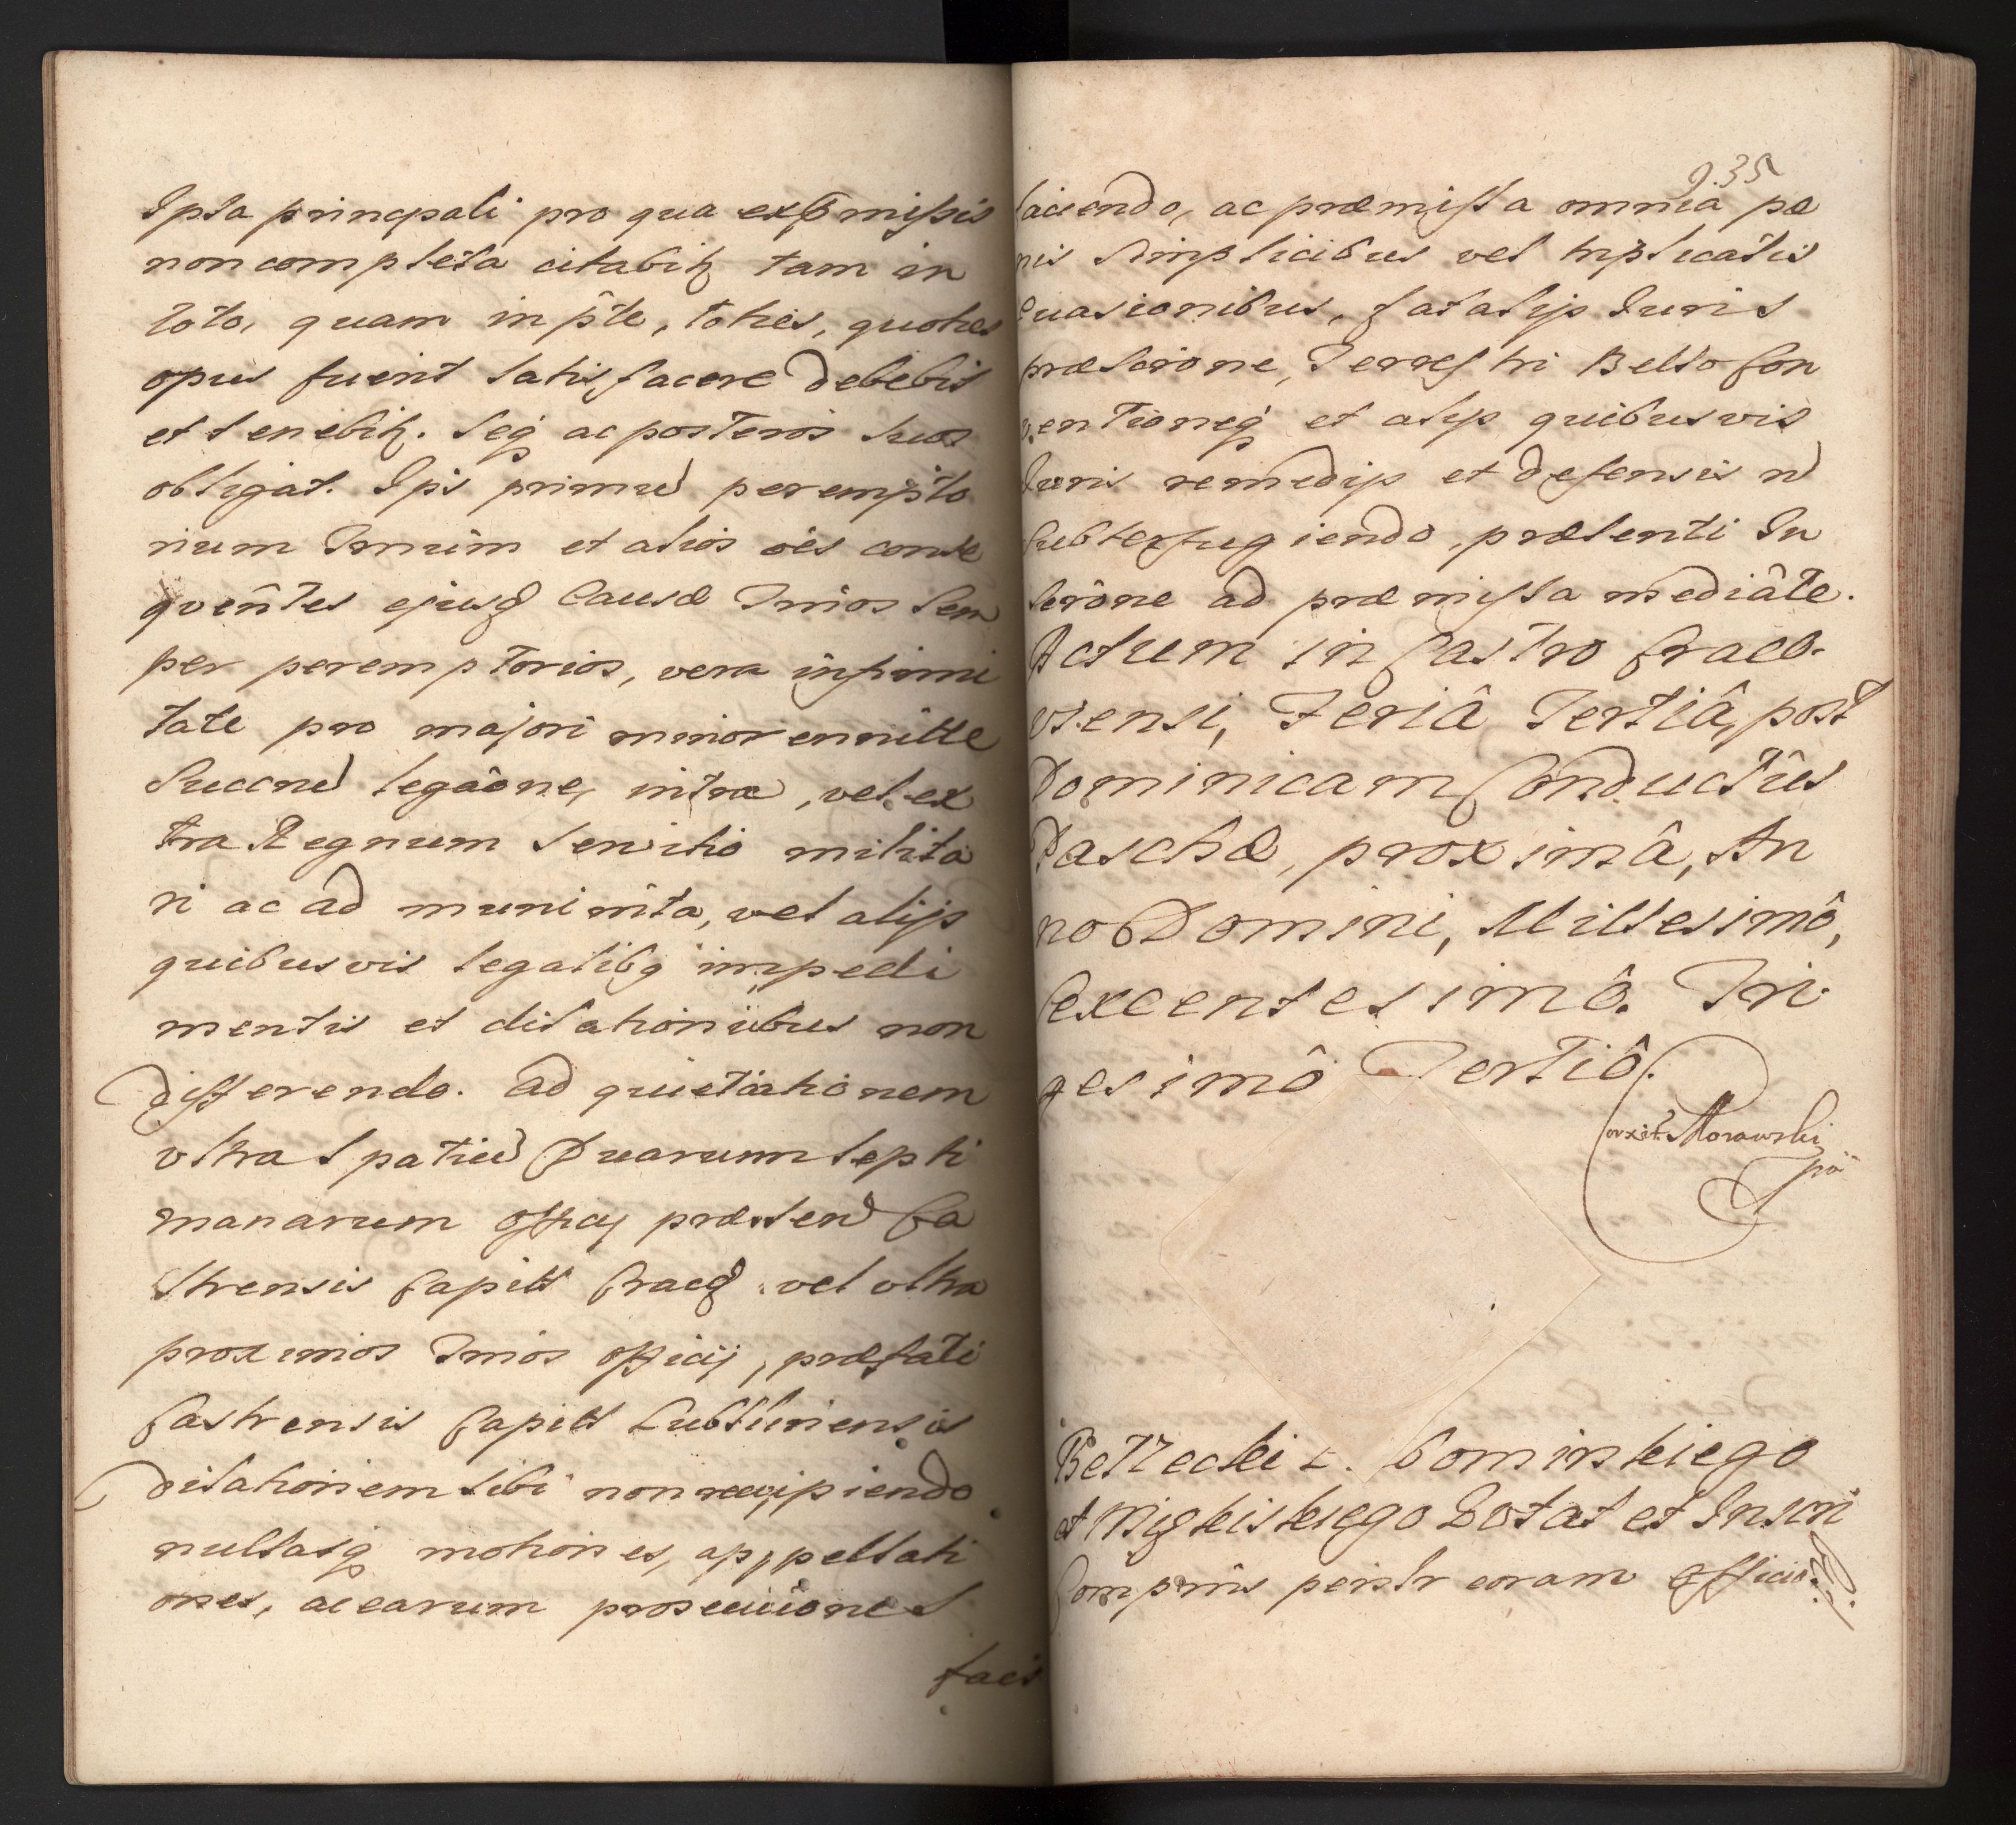 Ipsa principali pro qua ex pmissis
non completa citabitz tam in
toto, quam in pte, toties, quoties
opus fuerit satisfacere debebit
et tenebitz. Seq ac posteros suos
obligat. Ipis primu perempto
rium Tnnum et alios oes conse
quentes ejusd Causæ Tnnos Sem
per peremptorios, vera infirmi
tate pro majori minorennitte
Succnu legaone, intra, vel ex
tra Regnum servitio milita
ri ac ad munimta, vel alijs
quibusvis legalibq impedi
mentis et dilationibus non
differendo. ad quietationem
vltra spatiu Duarum septi
manarum officij præsten Ca
strensis Capitt Crac vel vltra
proximos Tnnos officij, præfati
Castrensis Capitt Lublinensis
dilationem sibi non recipiendo
nullasq motiones, appellati
ones, ac earum prosecuiones
faci
935
faciendo, ac præmissa omnia pæ
nis simplicibus vel triplicatis
euasionibus, fatalijs Iuris
præscrione, Terrestri Bello Con
ventioneq et alijs quibusvis
Iuris remedijs et defensis n
subterfugiendo, præsenti In
scrône ad præmissa mediâte.
Actum in Castro Craco-
viensi, Feriâ Tertiâ, post
Dominicam Conductûs
Paschæ, proximâ, An
no Domini, Millesimô,
Sexcentesimô. Tri
gesimô Tertiô.
Morawski
pa
Bełzecki z. Gominskiego
et Dotat et Inscri
Comprns coram Officio.